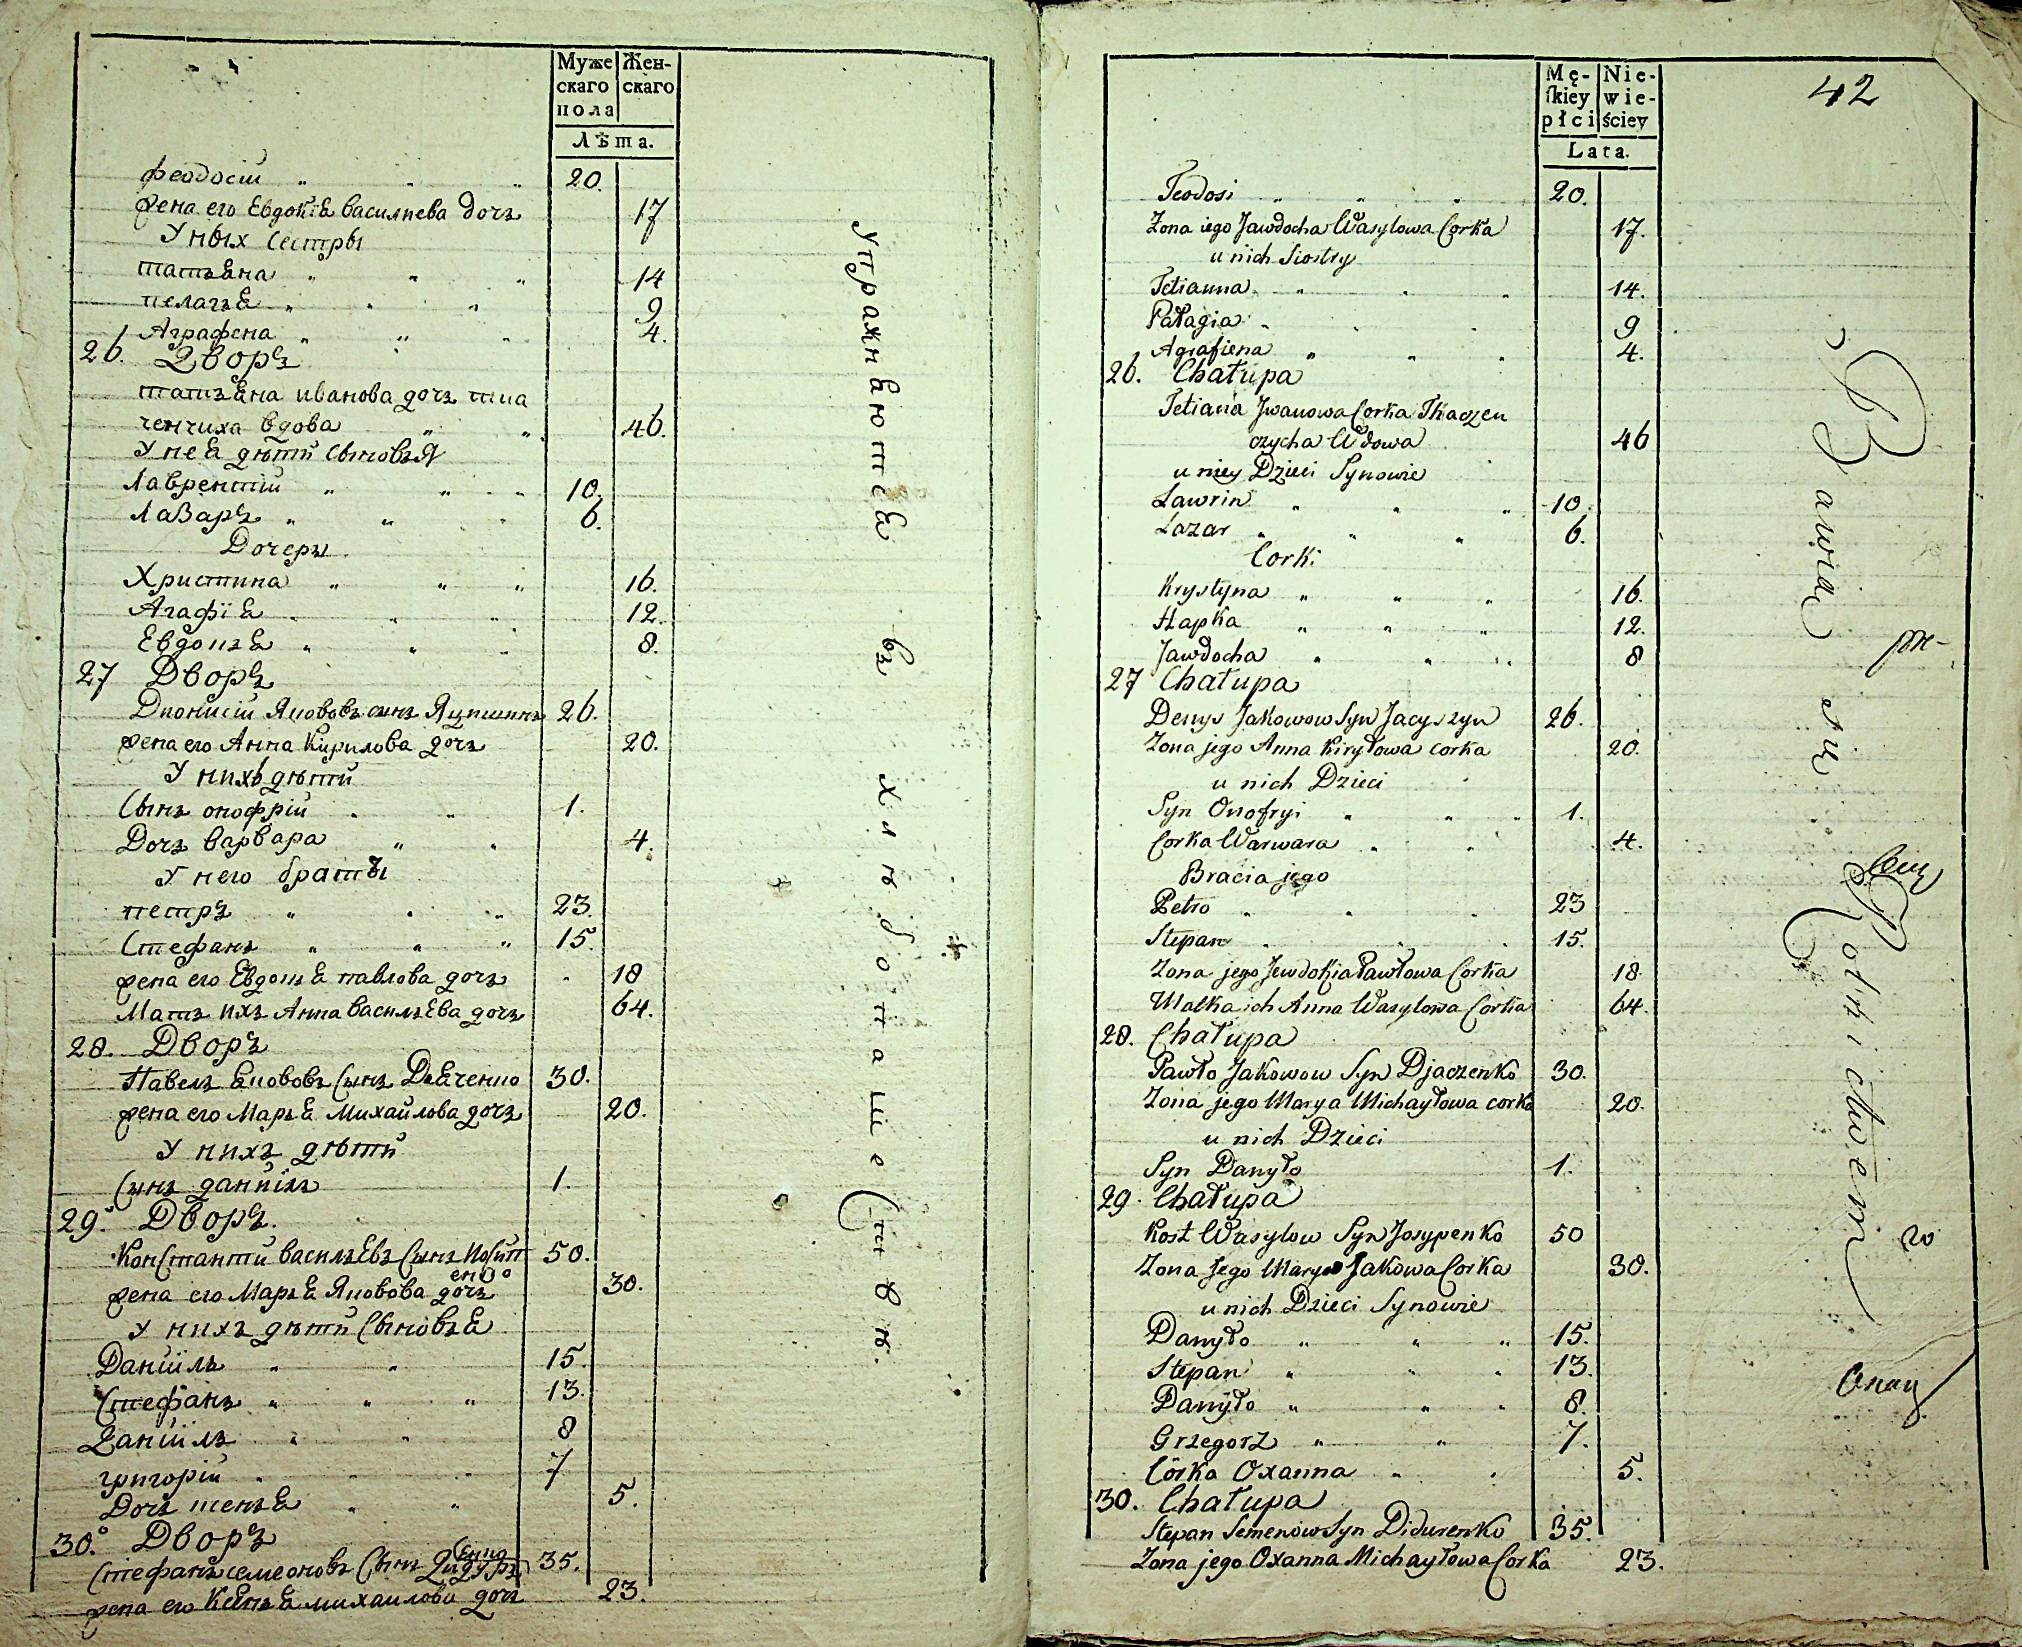 Муже
скаго
пола
Жен-
скаго
Лѣта.
Феодосій 20.
жена его Евдокія васильева дочь 17
У них сестры
татьяна 14
пелагъя 9
Аграфена 4.
26. Дворъ
татьяна иванова дочь тка
ченчиха вдова 46.
У нея дѣти сыновья
Лаврентій 10.
Лазарь 6.
Дочеры
Христина 16.
Агафія 12.
Евдокья 8.
27 Дворъ
Дионисій Яковов сынъ Яцишинъ 26.
жена его Анна Кирилова дочь 20.
У нихъ дѣти
Сынъ онофрій 1.
Дочь варвара 4.
У него браты
петръ 23.
Стефанъ 15.
жена его Евдокья павлова дочь 18
Мать ихъ Анна васильева дочь 64.
28. Дворъ
Павелъ яковов сынъ Дьяченко 30.
жена его Марья Михайлова дочь 20.
У нихъ дѣти
Сынъ даніилъ 1.
29. Дворъ.
Константи васильевъ сынъ Иосип
енко 50.
жена его Марья Яковова дочь 30.
У нихъ дѣти Сыновья
Даніилъ 15.
Стефанъ 13.
Даніилъ 8
григорій 7
Дочь 5.
30. Дворъ
Стефанъ семеоновъ Сынъ Дидур
енко 35.
жена его Ксенья михаилова дочь 23.
Упражняются въ хлѣбопашествѣ.
Mę-
skiey
płci
Nie-
wie-
ściey
Lata.
42
Teodosi 20.
Zona iego Jawdocha Wasylowa Corka 17.
u nich Siostry
Tetianna 14.
Pałagia 9
Agrafiena 4.
26. Chałupa
Tetiana Jwanowa Corka Tkaczen
czycha Wdowa 46
u niey Dzieci Synowie
Ławrin 10.
Łazar 6.
Corki
Krystyna 16.
Hapka 12.
Jawdocha 8
27 Chałupa
Denys Jakowow Syn Jacyszyn 26.
Zona jego Anna Kiryłowa corka 20.
u nich Dzieci
Syn Onofryi 1.
Corka Warwara 4.
Bracia jego
Petro 23
Stepan 15.
Zona jego Jewdokia Pawłowa Corka 18
Matka ich Anna Wasylowa Corka 64.
28. Chałupa
Pawło Jakowow Syn Djaczenko 30.
Zona jego Marya Michayłowa corka 20.
u nich Dzieci
Syn Danyło 1.
29. Chałupa
Kost Wasylow Syn Josypenko 50
Zona Jego Marya Jakowa Corka 30.
u nich Dzieci Synowie
Danyło 15.
Stepan 13.
Danyło 8.
Grzegorz 7.
Córka Oxanna 5.
30. Chałupa
Stepan Semenow Syn Didurenko 35.
Zona jego Oxanna Michayłowa Corka 23.
Bawią się Rolnictwem